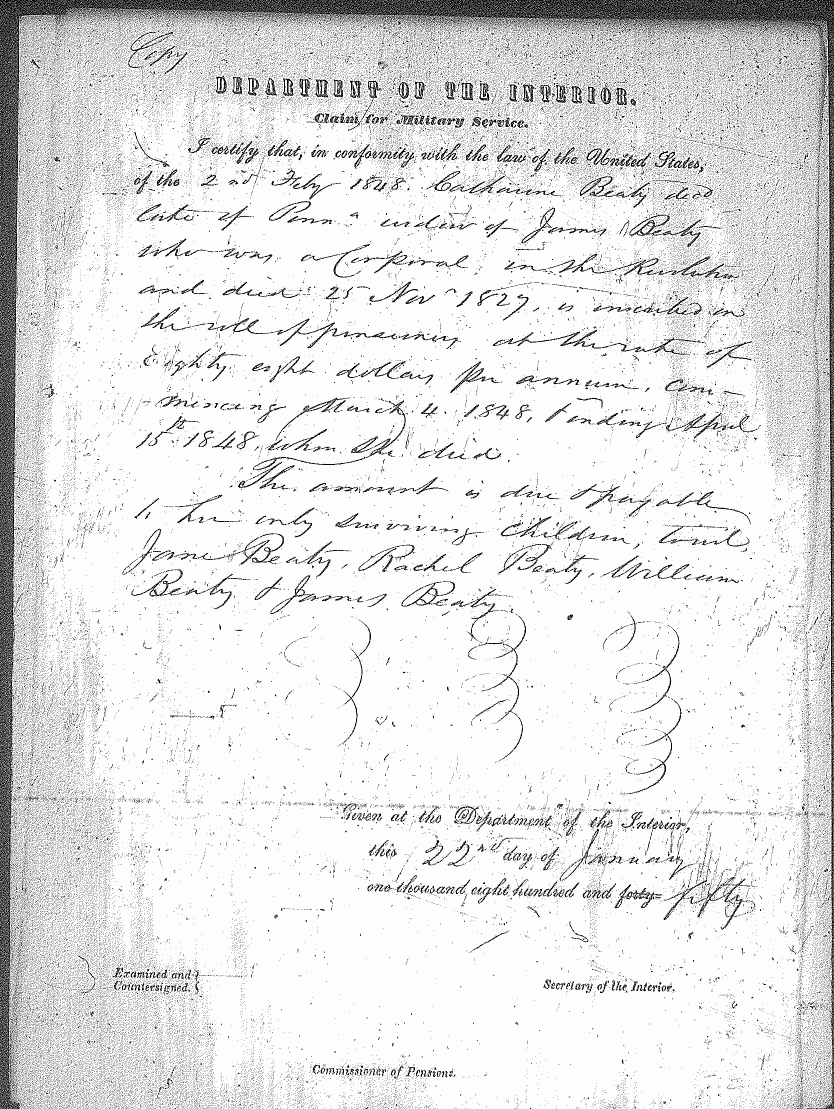 Copy
DEPARTMENT OF THE INTERIOR.
Claim for Military Service.
I certify that, in conformity with the law of the United States,
of the 2nd Feby 1848. Catharine Beaty decd
late of Penna widow of James Beaty
who was a Corporal in the Revolution
and died 25 Novr 1827, is inscribed on
the roll of pensioners at the rate of
Eighty eight dollars per annum, com-
mencing March 4. 1848, & ending April
15th 1848, when she died.
The amount is due & payable
to her only surviving children,
Jane Beaty, Rachel Beaty, William
Beaty & James Beaty.
Given at the Department of the Interior,
this 22nd day of January
one thousand eight hundred and forty fifty
Examined and
Countersigned.
Secretary of the Interior.
Commissioner of Pensions.